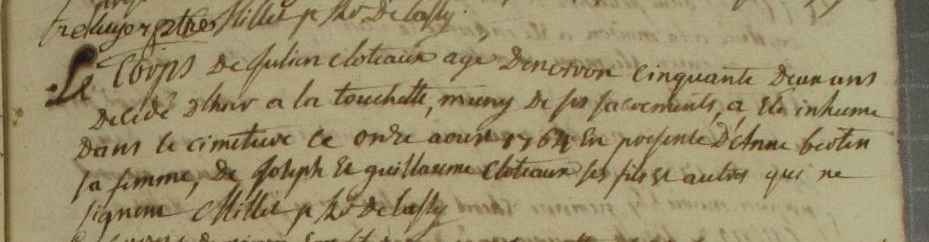 Millet p Rr De lassy
Le Corps de Julien cloteaux agé Denviron cinquante Deux ans
Decedé D'hier a la touchette, muny de ses sacrements, a eté inhumé
dans le cimetiere ce onze aoust 1764 en presence D'Anne beotin
sa femme, de Joseph et guillaume cloteaux ses fils et autres qui ne
signent Millet p Rr De lassy